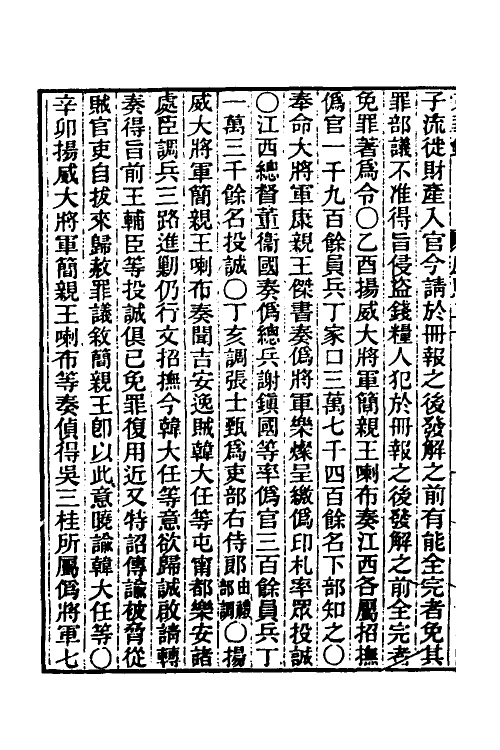 子流徙財產入官今請於冊報之後發解之前有能全完者免其
罪部議不准得旨侵盜錢糧人犯於冊報之後發解之前全完者
免罪著爲令〇乙酉揚威大將軍簡親王喇布奏江西各屬招撫
僞官一千九百餘員兵丁家口三萬七千四百餘名下部知之〇
奉命大將軍康親王傑書奏僞將軍樂燦呈繳僞印札率眾投誠
〇江西總督董衞國奏僞總兵謝鎭國等率僞官三百餘員兵丁
一萬三千餘名投誠〇丁亥調張士甄爲吏部右侍郞由禮部調〇揚
威大將軍簡親王喇布奏聞吉安逸賊韓大任等屯甯都樂安諸
處臣調兵三路進勦仍行文招撫今韓大任等意欲歸誠啟請轉
奏得旨前王輔臣等投誠俱已免罪復用近又特詔傳諭被脅從
賊官吏自拔來歸赦罪議敘簡親王卽以此意曉諭韓大任等〇
辛卯揚威大將軍簡親王喇布等奏偵得吳三桂所屬僞將軍七